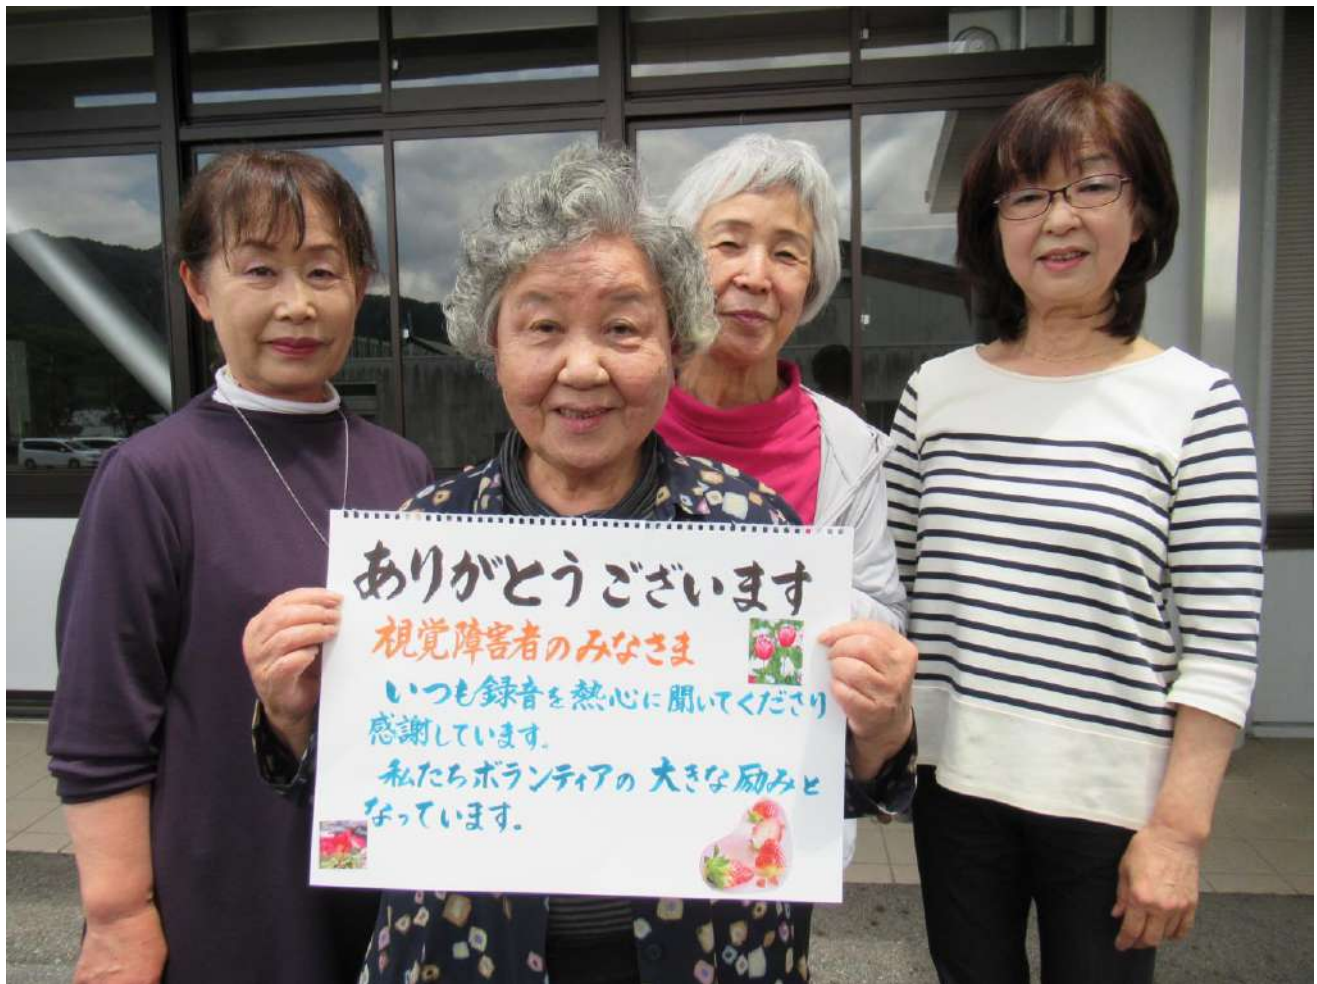 ありがとうございます
視覚障害者のみなさま
いつも録音を熱心に聞いてくださり
感謝しています。
私たちボランティアの大きな励みと
なっています。